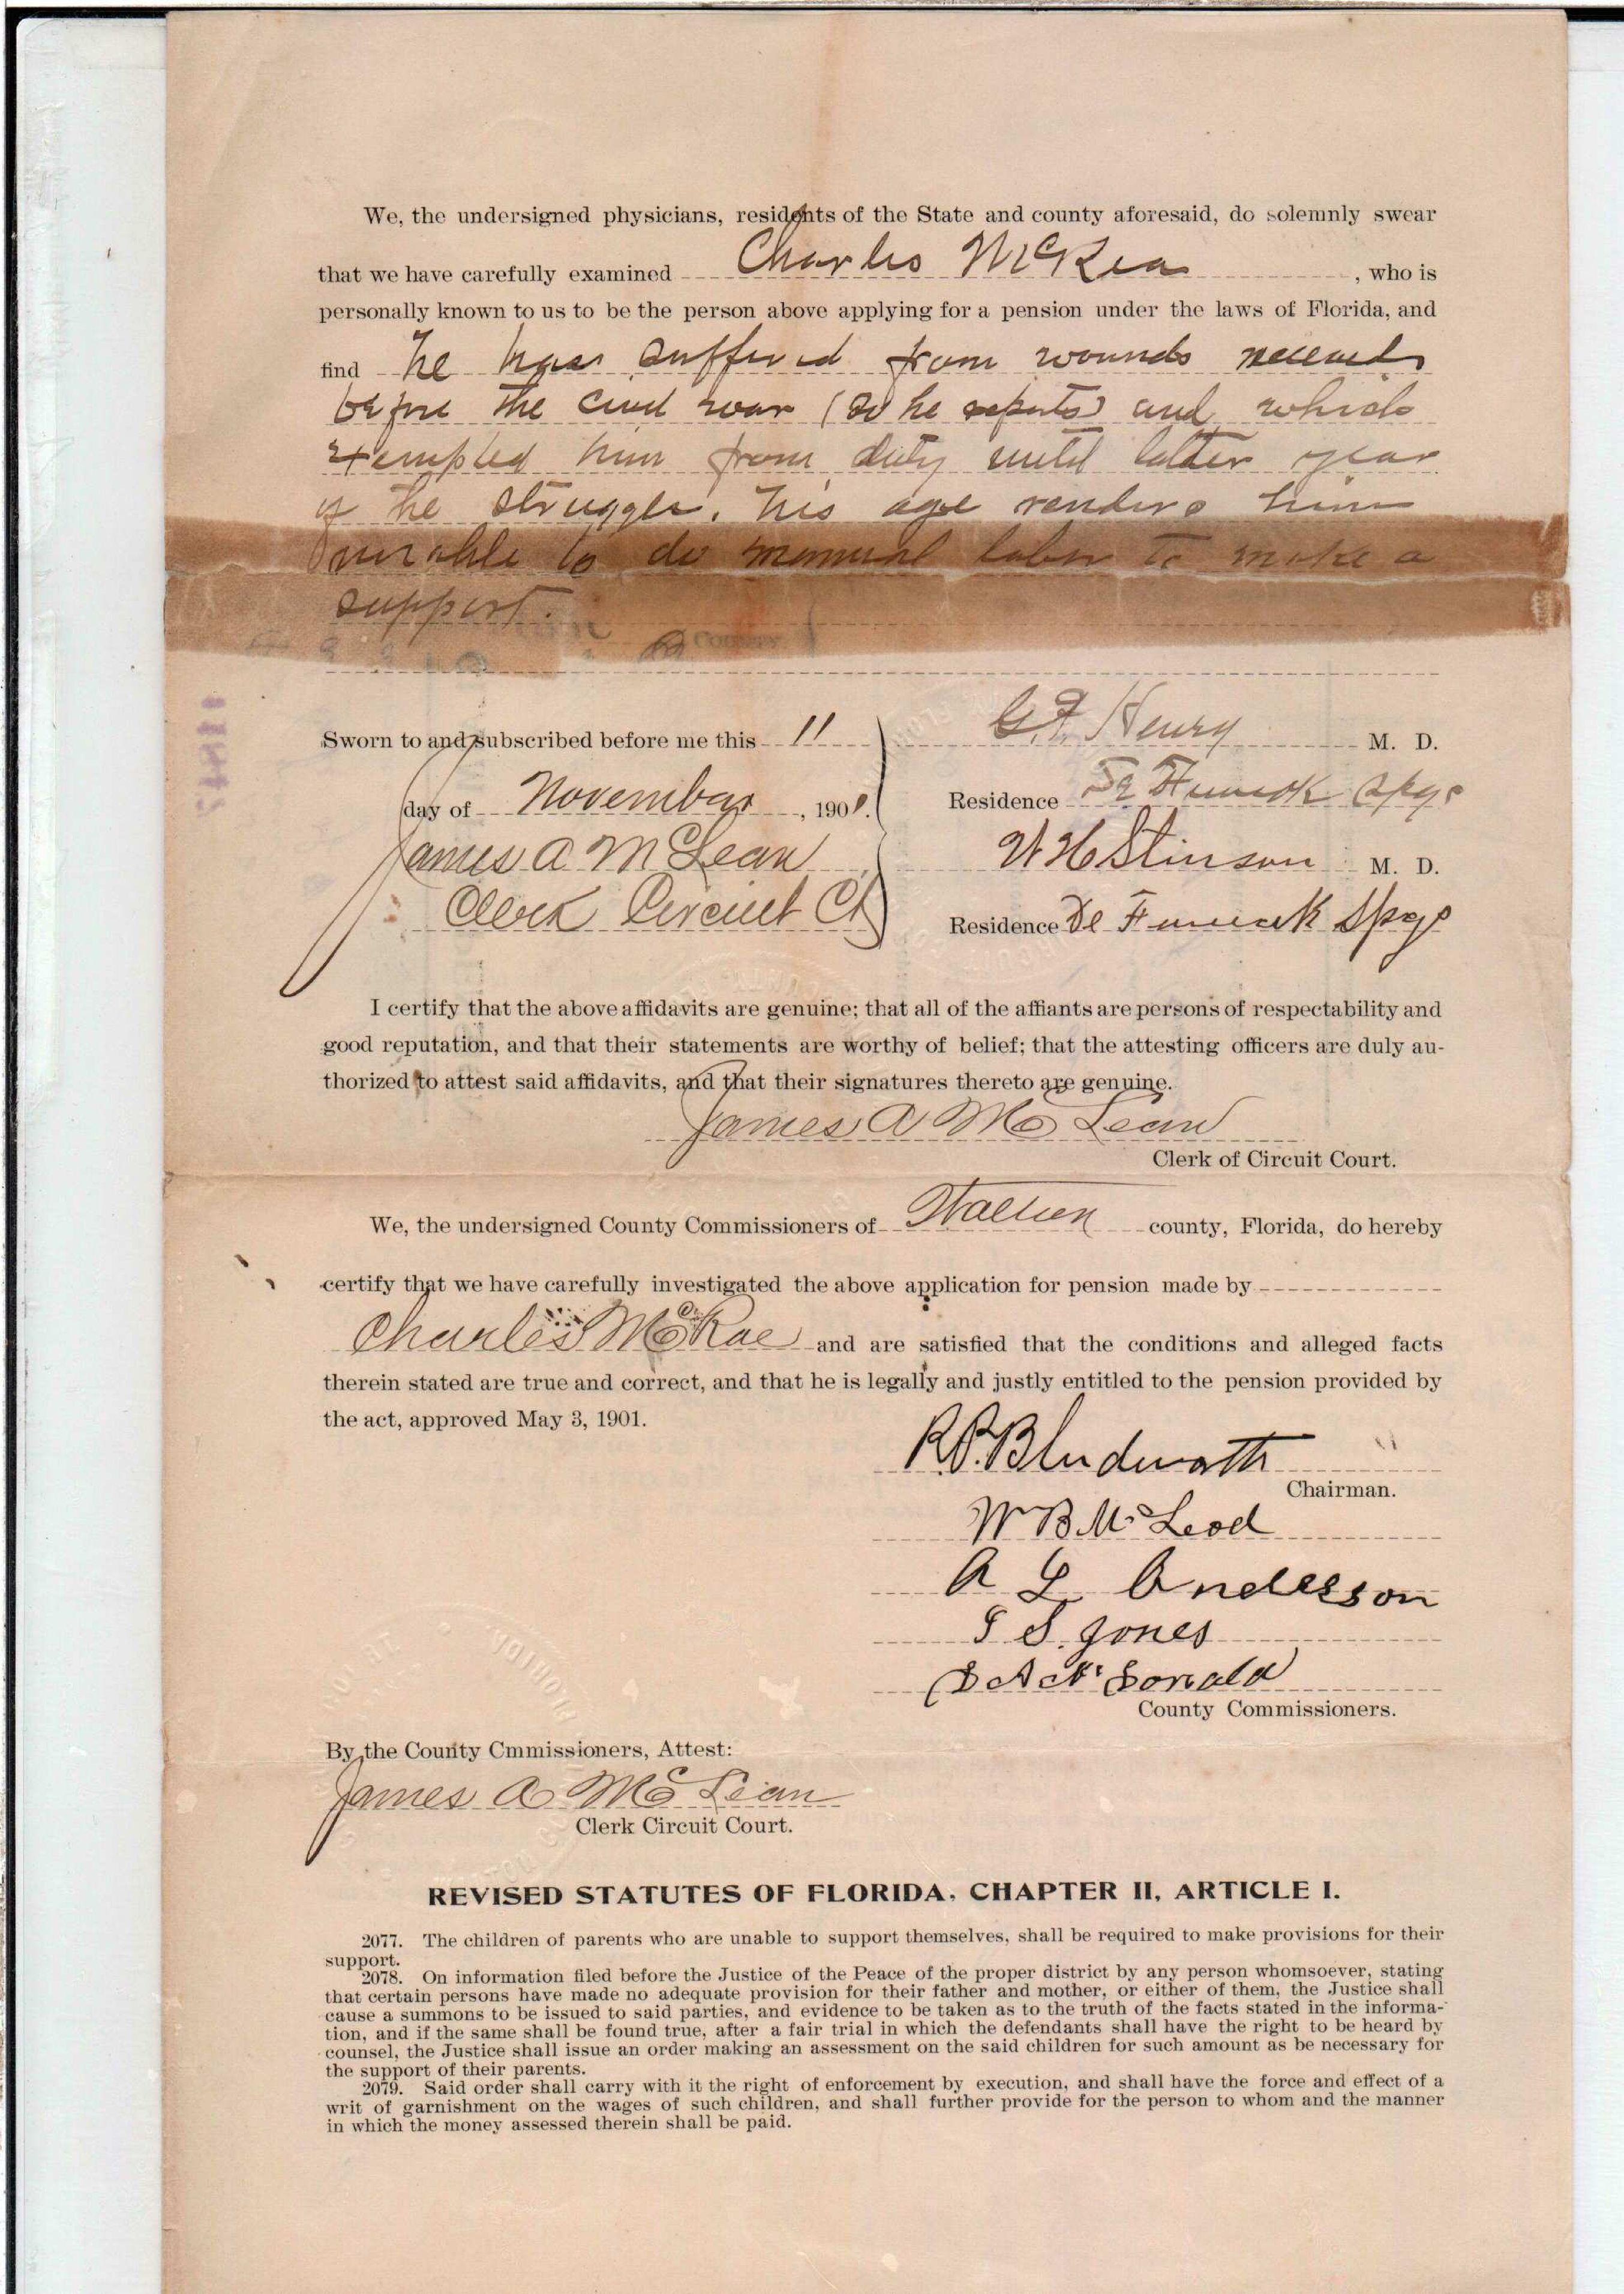 We, the undersigned physicians, residents of the State and county aforesaid, do solemnly swear
that we have carefully examined Charles McRea, who is
personally known to us to be the person above applying for a pension under the laws of Florida, and
find he has suffered from wounds received
before the civil war (so he reports) and which
exempted him from duty until latter year
of the struggle. his age renders him
unable to do manual labor to make a
support.
County
Sworn to and subscribed before me this 11
G. F. Henry M. D.
day of November, 1901.
Residence De Funiak Spgs
James A McLean
W H Stinson M. D.
Clerk Circuit Ct
Residence De Funiak Spgs
I certify that the above affidavits are genuine; that all of the affiants are persons of respectability and
good reputation, and that their statements are worthy of belief; that the attesting officers are duly au-
thorized to attest said affidavits, and that their signatures thereto are genuine.
James A McLean
Clerk of Circuit Court.
We, the undersigned County Commissioners of Walton county, Florida, do hereby
certify that we have carefully investigated the above application for pension made by
Charles McRae and are satisfied that the conditions and alleged facts
therein stated are true and correct, and that he is legally and justly entitled to the pension provided by
the act, approved May 3, 1901.
R.P. Bludworth
Chairman.
W B McLeod
A L Anderson
S. Jones
D A McDonald
County Commissioners.
By the County Cmmissioners, Attest:
James A McLean
Clerk Circuit Court.
REVISED STATUTES OF FLORIDA, CHAPTER II, ARTICLE I.
2077. The children of parents who are unable to support themselves, shall be required to make provisions for their
support.
2078. On information filed before the Justice of the Peace of the proper district by any person whomsoever, stating
that certain persons have made no adequate provision for their father and mother, or either of them, the Justice shall
cause a summons to be issued to said parties, and evidence to be taken as to the truth of the facts stated in the informa-
tion, and if the same shall be found true, after a fair trial in which the defendants shall have the right to be heard by
counsel, the Justice shall issue an order making an assessment on the said children for such amount as be necessary for
the support of their parents.
2079. Said order shall carry with it the right of enforcement by execution, and shall have the force and effect of a
writ of garnishment on the wages of such children, and shall further provide for the person to whom and the manner
in which the money assessed therein shall be paid.